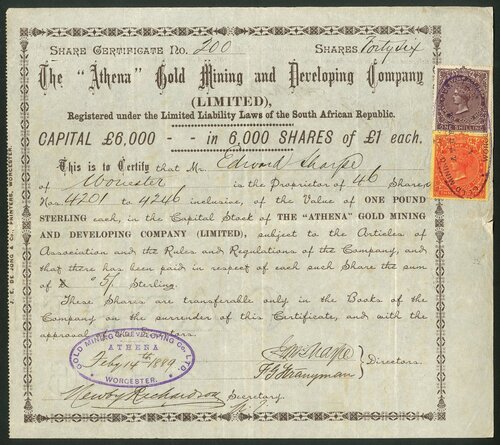 SHARE CERTIFICATE NO. 200 SHARES Forty six
The "Athena" Gold Mining and Developing Company
(LIMITED),
Registered under the Limited Liability Laws of the South African Republic.
CAPITAL £6,000 - in 6,000 SHARES of £1 each.
This is to Certify that Mr. Edward Sharpe
of Worcester is the Proprietor of 46 Shares
Nos 4201 to 4246 inclusive, of the Value of ONE POUND
STERLING each, in the Capital Stock of THE "ATHENA" GOLD MINING
AND DEVELOPING COMPANY (LIMITED), subject to the Articles of
Association and the Rules and Regulations of the Company, and
that there has been paid in respect of each such Share the sum
of £ 5/ Sterling.
These Shares are transferable only in the Books of the
Company on the surrender of this Certificate, and with the
approval of the Directors.
GOLD MINING & DEVELOPING CO. LTD.
ATHENA
Feby 14th 1889
WORCESTER.
Directors.
Newby Richardson Secretary.
ONE SHILLING
PRINTERS, WORCESTER.